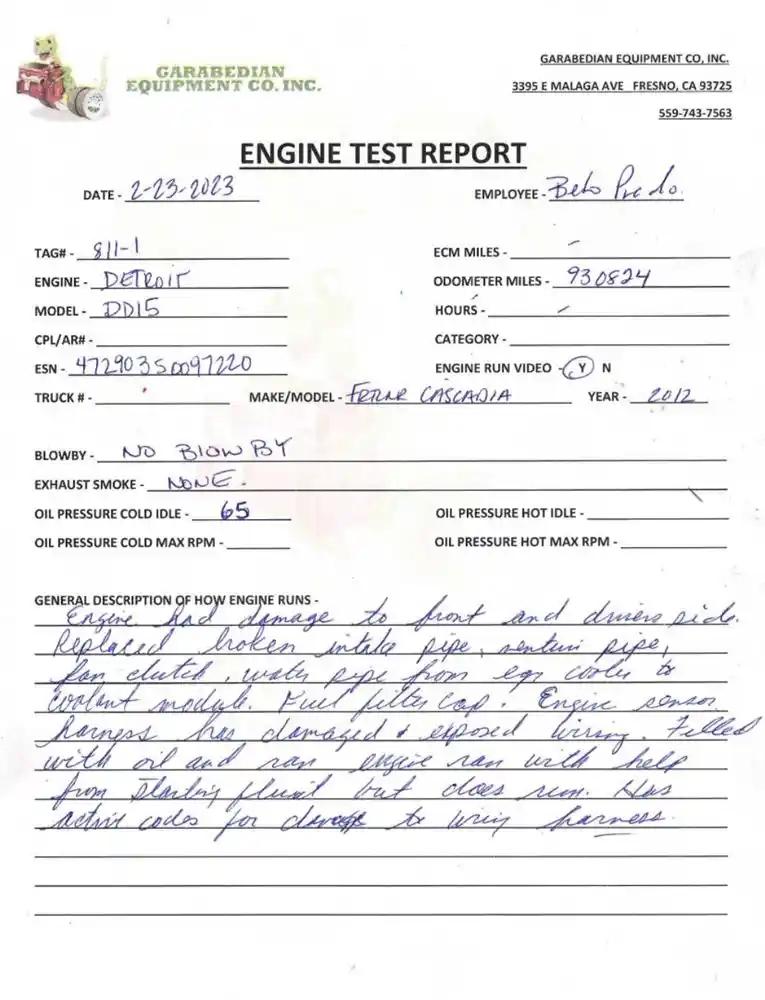 GARABEDIAN
EQUIPMENT CO. INC.
GARABEDIAN EQUIPMENT CO, INC.
3395 E MALAGA AVE FRESNO, CA 93725
559-743-7563
ENGINE TEST REPORT
DATE - 2-23-2023 EMPLOYEE - Beto Prado.
TAG# - 811-1 ECM MILES - -
ENGINE - DETROIT ODOMETER MILES - 930824
MODEL - DD15 HOURS - -
CPL/AR# - CATEGORY -
ESN - 472903S0097220 ENGINE RUN VIDEO - Y N
TRUCK # - MAKE/MODEL - CASCADIA YEAR - 2012
BLOWBY - NO BLOW BY
EXHAUST SMOKE - NONE -
OIL PRESSURE COLD IDLE - 65 OIL PRESSURE HOT IDLE -
OIL PRESSURE COLD MAX RPM - OIL PRESSURE HOT MAX RPM -
GENERAL DESCRIPTION OF HOW ENGINE RUNS -
Engine had damage to front and drivers side.
Replaced broken intake pipe, venturi pipe,
fan clutch, water pipe from egr cooler to
coolant module. Fuel filter cap. Engine sensor
harness has damaged & exposed wiring. Filled
with oil and ran engine ran with help
from starting fluid but does run. Has
active codes for damage to wiring harness.